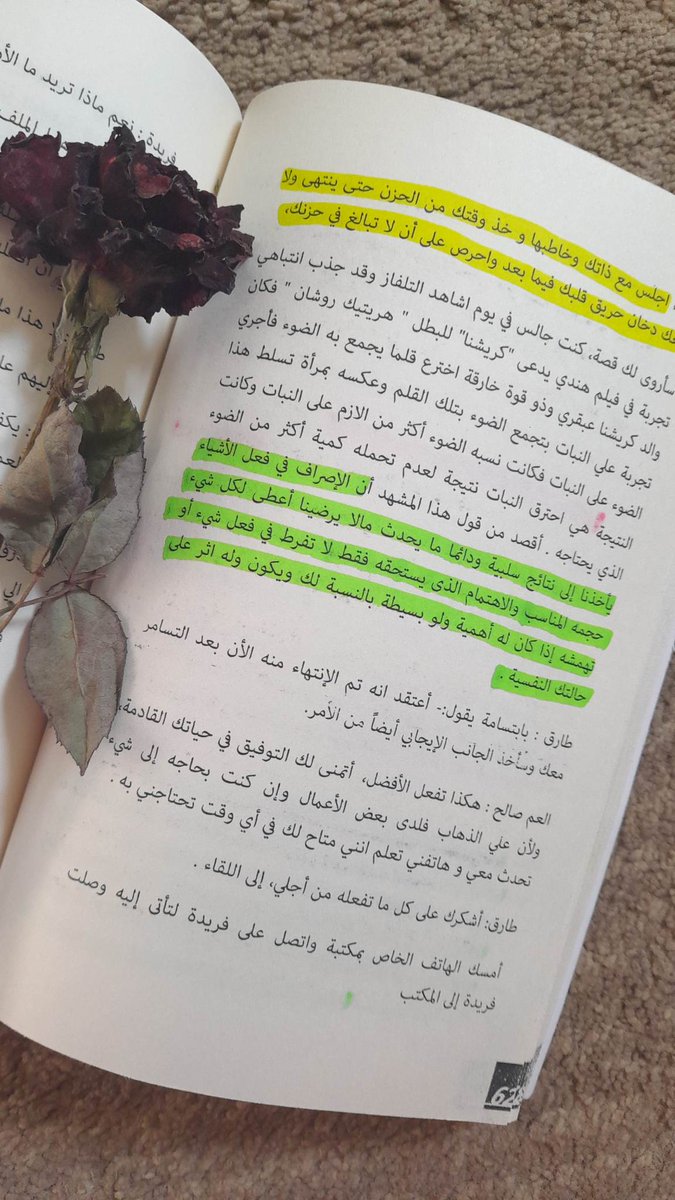 اجلس مع ذاتك وخاطبها و خذ وقتك من الحزن حتى ينتهى ولا
دخان حريق قلبك فيما بعد واحرص على أن لا تبالغ في حزنك،
سأروى لك قصة، كنت جالس في يوم اشاهد التلفاز وقد جذب انتباهي
تجربة في فيلم هندي يدعى "كريشنا" للبطل " هريتيك روشان " فكان
والد كريشنا عبقري وذو قوة خارقة اخترع قلما يجمع به الضوء فأجري
تجربة علي النبات بتجمع الضوء بتلك القلم وعكسه بمرأة تسلط هذا
الضوء على النبات فكانت نسبه الضوء أكثر من الازم على النبات وكانت
النتيجة هي احترق النبات نتيجة لعدم تحمله كمية أكثر من الضوء
الذي يحتاجه . أقصد من قول هذا المشهد أن الإصراف في فعل الأشياء
يأخذنا إلى نتائج سلبية ودائما ما يحدث مالا يرضينا أعطى لكل شيء
حجمه المناسب والاهتمام الذى يستحقه فقط لا تفرط في فعل شيء أو
تهمشه إذا كان له أهمية ولو بسيطة بالنسبة لك ويكون وله اثر على
حالتك النفسية .
طارق : بابتسامة يقول:- أعتقد انه تم الإنتهاء منه الأن بعد التسامر
معك وسأخذ الجانب الإيجابي أيضاً من الأمر.
العم صالح : هكذا تفعل الأفضل، أتمنى لك التوفيق في حياتك القادمة،
ولأن علي الذهاب فلدى بعض الأعمال وإن كنت بحاجه إلى شيء
تحدث معي و هاتفني تعلم انني متاح لك في أي وقت تحتاجني به .
طارق: أشكرك على كل ما تفعله من أجلي، إلى اللقاء .
أمسك الهاتف الخاص بمكتبة واتصل على فريدة لتأتى إليه وصلت
فريدة إلى المكتب
فريدة : نعم ماذا تريد ما